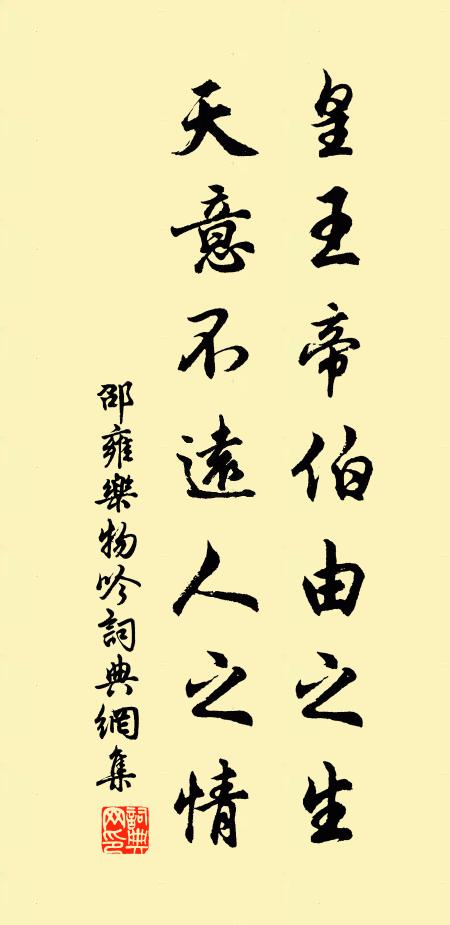 皇王帝伯由之生
天意不遠人之情
邵雍樂物吟詞典網集
詞典網印